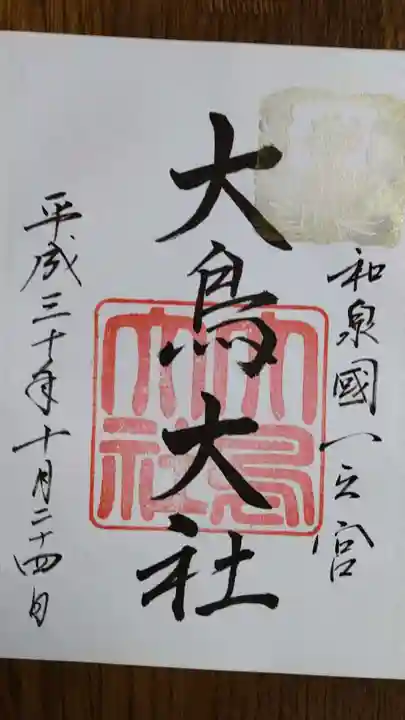 和泉國一之宮
大鳥大社
大鳥大社
平成三十年十月二十四日